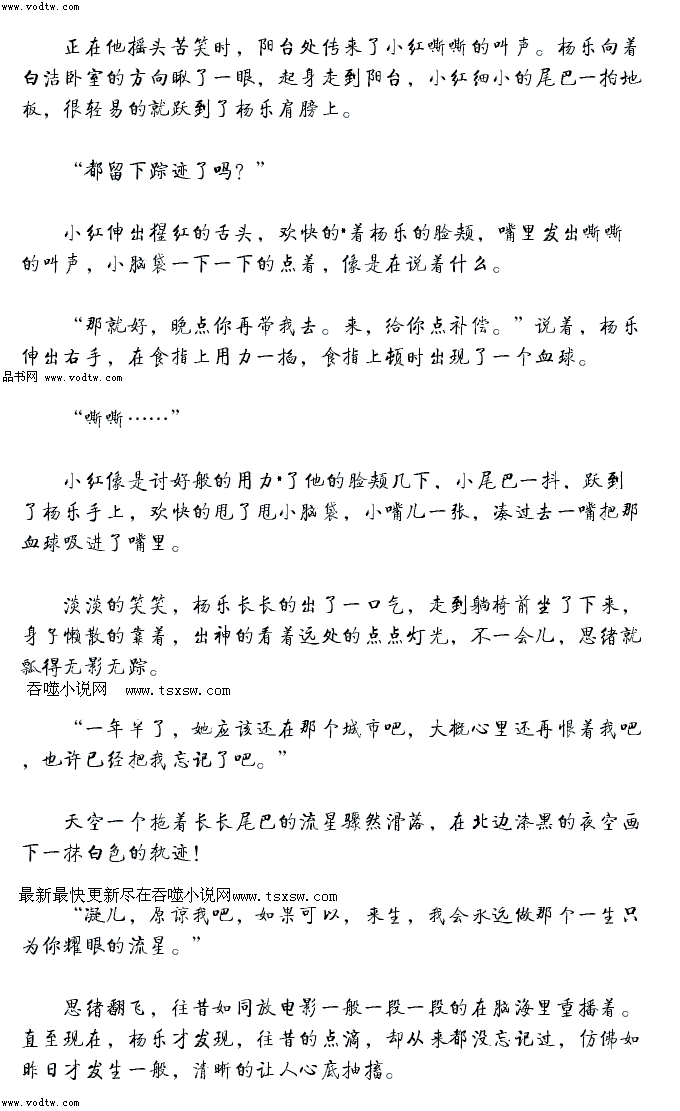 www.vodtw.com
正在他摇头苦笑时，阳台处传来了小红嘶嘶的叫声。杨乐向着
白洁卧室的方向瞅了一眼，起身走到阳台，小红细小的尾巴一拍地
板，很轻易的就跃到了杨乐肩膀上。
“都留下踪迹了吗？”
小红伸出猩红的舌头，欢快的*着杨乐的脸颊，嘴里发出嘶嘶
的叫声，小脑袋一下一下的点着，像是在说着什么。
“那就好，晚点你再带我去。来，给你点补偿。”说着，杨乐
伸出右手，在食指上用力一掐，食指上顿时出现了一个血球。
品书网 www.vodtw.com
“嘶嘶……”
小红像是讨好般的用力*了他的脸颊几下，小尾巴一抖，跃到
了杨乐手上，欢快的甩了甩小脑袋，小嘴儿一张，凑过去一嘴把那
血球吸进了嘴里。
淡淡的笑笑，杨乐长长的出了一口气，走到躺椅前坐了下来，
身子懒散的靠着，出神的看着远处的点点灯光，不一会儿，思绪就
瓢得无影无踪。
吞噬小说网 www.tsxsw.com
“一年半了，她应该还在那个城市吧，大概心里还再恨着我吧
，也许已经把我忘记了吧。”
天空一个拖着长长尾巴的流星骤然滑落，在北边漆黑的夜空画
下一抹白色的轨迹！
最新最快更新尽在吞噬小说网www.tsxsw.com
“凝儿，原谅我吧，如果可以，来生，我会永远做那个一生只
为你耀眼的流星。”
思绪翻飞，往昔如同放电影一般一段一段的在脑海里重播着。
直至现在，杨乐才发现，往昔的点滴，却从来都没忘记过，仿佛如
昨日才发生一般，清晰的让人心底抽搐。
www.vodtw.com